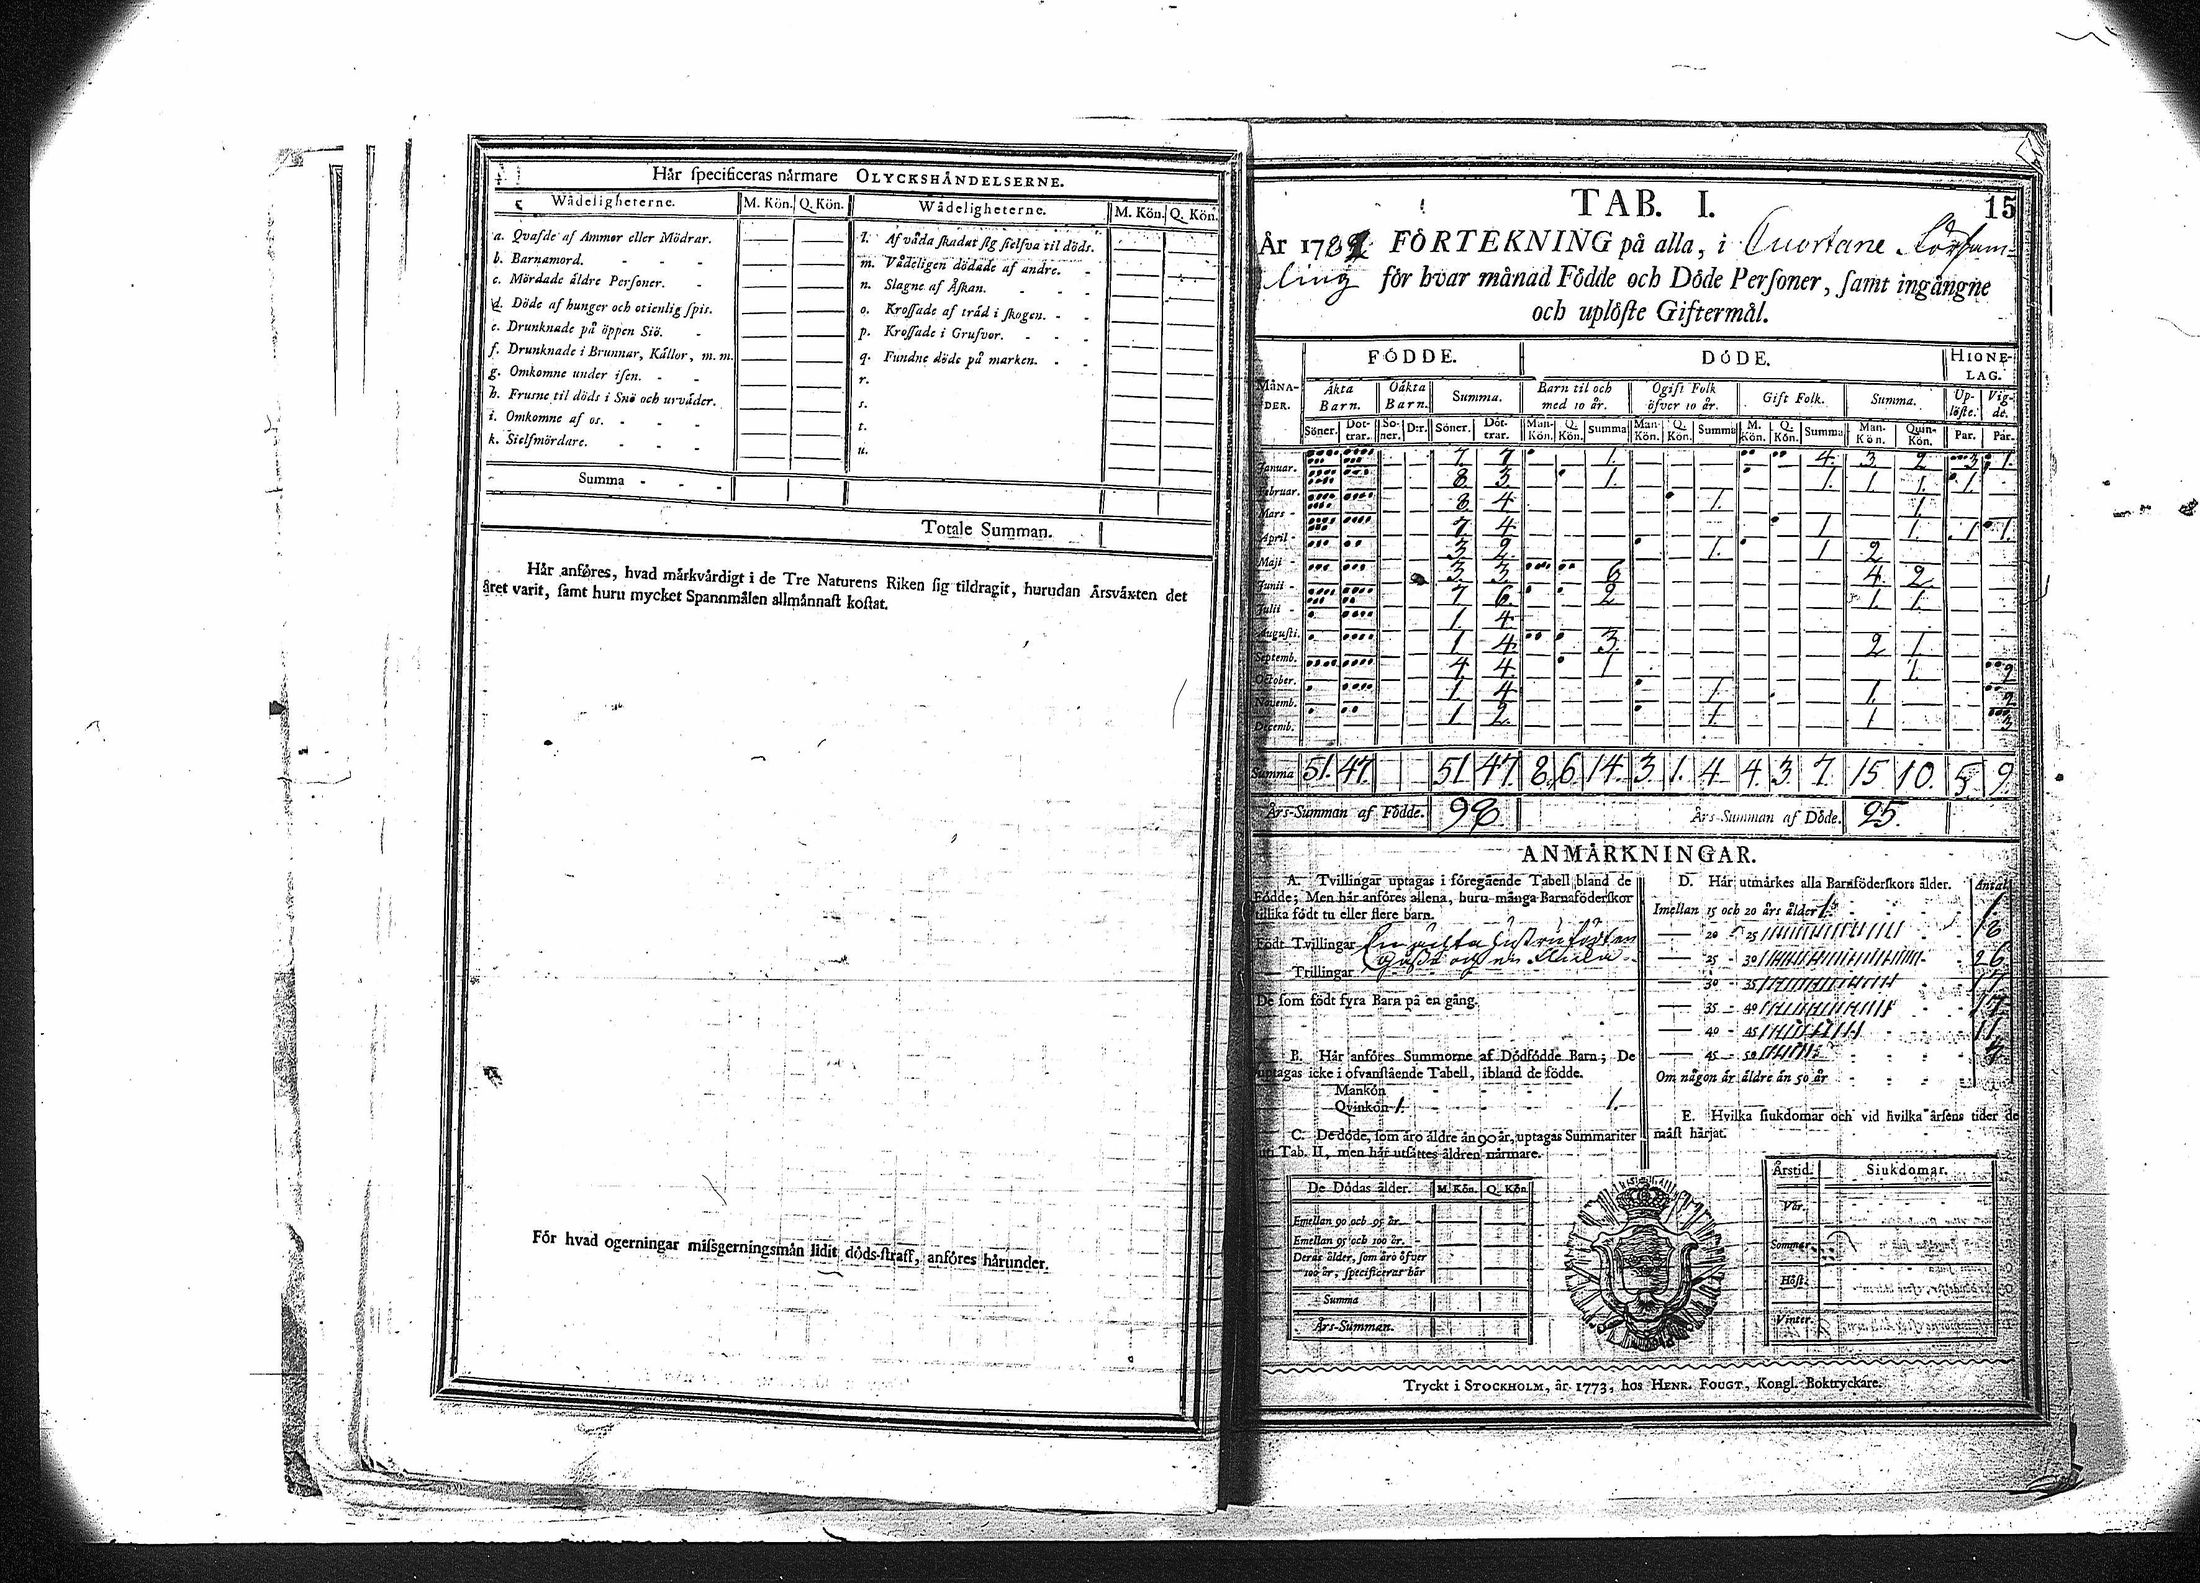 Hår specificeras nårmare OLYCKSHÅNDELSERNE.
Wådeligheterne. M. Kön. Q. Kön. Wådeligheterne. M. Kön. Q. Kön.
a. Qvafde af Ammor eller Mödrar.
b. Barnamord.
c. Mördade åldre Personer.
d. Döde af hunger och otienlig spis.
e. Drunknade på öppen Siö.
f. Drunknade i Brunnar, Kållor, m. m.
g. Omkomne under isen.
h. Frusne til döds i Snö och urvåder.
i. Omkomne af os.
k. Sielfmördare.
l. Af våda skadat sig sielfva til döds.
m. Vådeligen dödade af andre.
n. Slagne af Åskan.
o. Krossade af tråd i skogen.
p. Krossade i Grufvor.
q. Fundne döde på marken.
r.
s.
t.
u.
Summa
Totale Summan.
Hår anföres, hvad mårkvårdigt i de Tre Naturens Riken sig tildragit, hurudan Årsvåxten det
året varit, samt huru mycket Spannmålen allmånnast kostat.
För hvad ogerningar missgerningsmån lidit döds-straff, anföres hårunder.
TAB. I. 15
År 178 FÖRTEKNING på alla, i Cuortane Försam=
ling för hvar månad Födde och Döde Personer, samt ingångne
och uplöste Giftermål.
FÖDDE. DÖDE. HIONE-LAG.
MÅNA-DER. Åkta Barn. Oåkta Barn. Summa. Barn til och med 10 år. Ogift Folk öfver 10 år. Gift Folk. Summa. Up-löste. Vig-de.
Söner. Döt-trar. So-ner. D:r. Söner. Döt-trar. Man-Kön. Q. Kön. Summa Man-Kön. Q. Kön. Summa M. Kön. Q. Kön. Summa Man-Kön. Quin-Kön. Par. Par.
Januar. 7 7 1. 4. 3 2 3 1.
Februar. 8 3 1. 1. 1. 1. 1.
Mars 8 4 1. 1.
April 7 4 1 1. 1 1.
Maji 3 2 1. 1 2
Junii 3. 3 6 4 2
Julii 7 6 2 1. 1.
Augusti. 1. 4
Septemb. 1 4 3. 2 1.
October. 4. 4. 1 1. 2
Novemb. 1. 4 1. 1. 2
Decemb. 1. 2. 1. 1 3
Summa 51. 47. 51 47. 8. 6. 14. 3. 1. 4. 4. 3. 7. 15. 10. 5. 9.
Års-Summan af Födde. 98 Års-Summan af Döde. 25.
ANMÅRKNINGAR.
A. Tvillingar uptagas i föregående Tabell bland de
Födde; Men hår anföres allena, huru många Barnaföderskor
tillika födt tu eller flere barn.
Födt Tvillingar En ächta hustru födt en
Trillingar
De som födt fyra Barn på en gång.
B. Hår anföres Summorne af Dödfödde Barn; De
uptagas icke i ofvanstående Tabell, ibland de födde.
Mankön
Qvinkön 1. 1.
C. De döde, som åro åldre ån 90 år, uptagas Summariter
uti Tab. II, men hår utsåttes åldren nårmare.
De Dödas ålder. M. Kön. Q. Kön
Emellan 90 och 95 år.
Emellan 95 och 100 år.
Deras ålder, som åro öfver
100 år, specificeras hår
Summa
Års-Summan.
D. Hår utmårkes alla Barnföderskors ålder. Antal
Imellan 15 och 20 års ålder 1
20 - 25 18
25 - 30 26
30 - 35 17
35 - 40 17
40 - 45 11
45 - 50
Om någon år åldre ån 50 år
E. Hvilka siukdomar och vid hvilka årsens tider de
måst hårjat.
Årstid. Siukdomar.
Vår.
Sommar.
Höst.
Vinter.
Tryckt i STOCKHOLM, år 1773, hos HENR. FOUGT, Kongl. Boktryckåre.